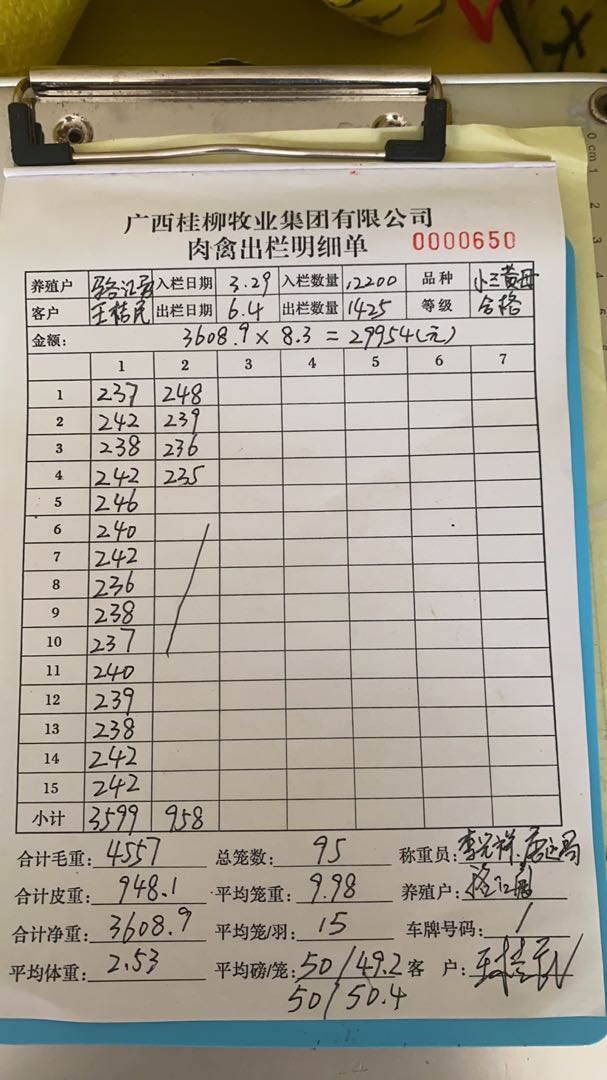 广西桂柳牧业集团有限公司
肉禽出栏明细单 0000650
养殖户 入栏日期 3.29 入栏数量 12200 品种 小三黄母
客户 王桔民 出栏日期 6.4 出栏数量 1425 等级 合格
金额: 3608.9 × 8.3 = 29954(元)
1 2 3 4 5 6 7
1 237 248
2 242 239
3 238 236
4 242 235
5 246
6 240
7 242
8 236
9 238
10 237
11 240
12 239
13 238
14 242
15 242
小计 3599 958
合计毛重: 4557 总笼数: 95 称重员:
合计皮重: 948.1 平均笼重: 9.98 养殖户:
合计净重: 3608.9 平均笼/羽: 15 车牌号码: /
平均体重: 2.53 平均磅/笼: 50/49.2 客 户:
50/50.4
0 cm 1
2
3
4
5